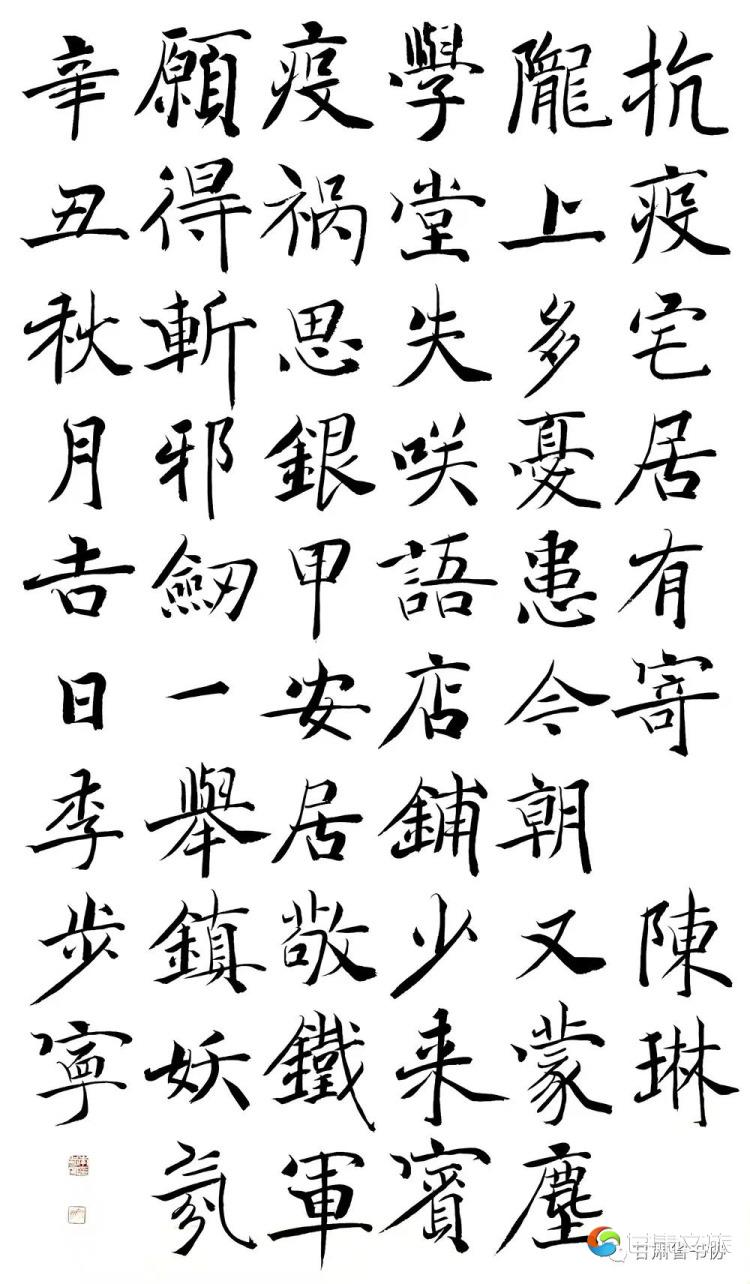 抗疫宅居有寄 陳琳
隴上多憂患今朝又蒙塵
學堂失咲語店鋪少来賓
疫祸思銀甲安居敬鐵軍
願得斬邪劒一舉鎮妖氛
辛丑秋月吉日季步寧
甘肃省书协